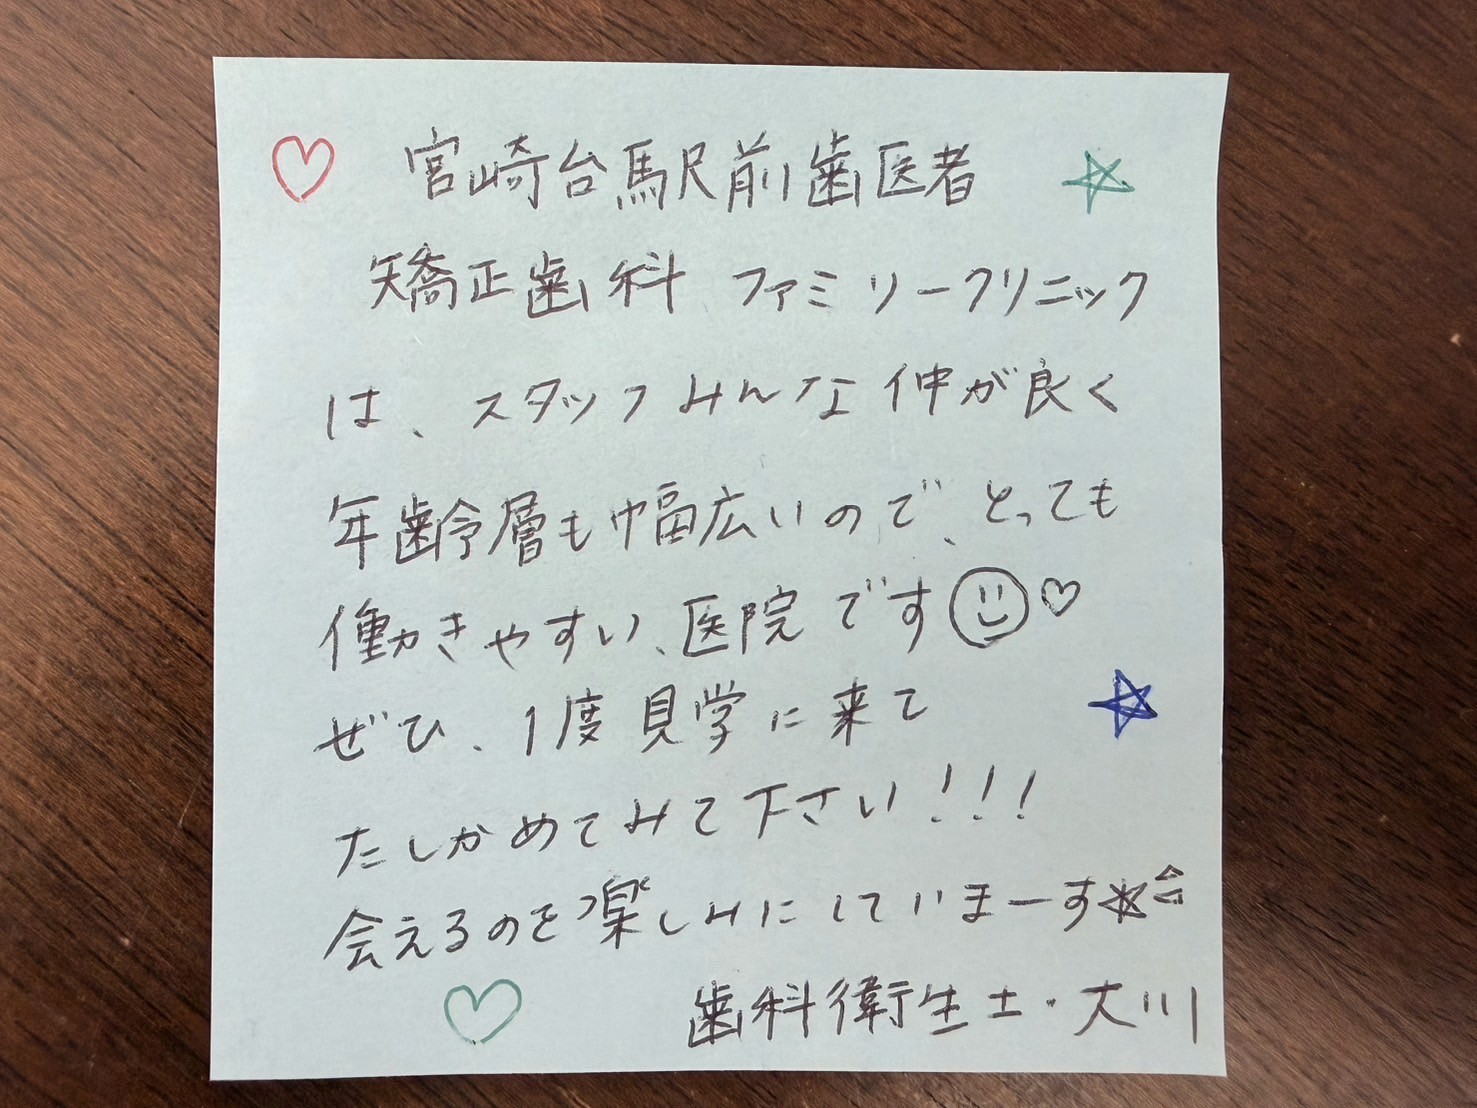 宮崎台駅前歯医者
矯正歯科 ファミリークリニック
は、スタッフみんな仲が良く
年齢層も幅広いので、とっても
働きやすい、医院です
ぜひ、1度見学に来て
たしかめてみて下さい！！！
会えるのを楽しみにしていまーす☆
歯科衛生士・大川